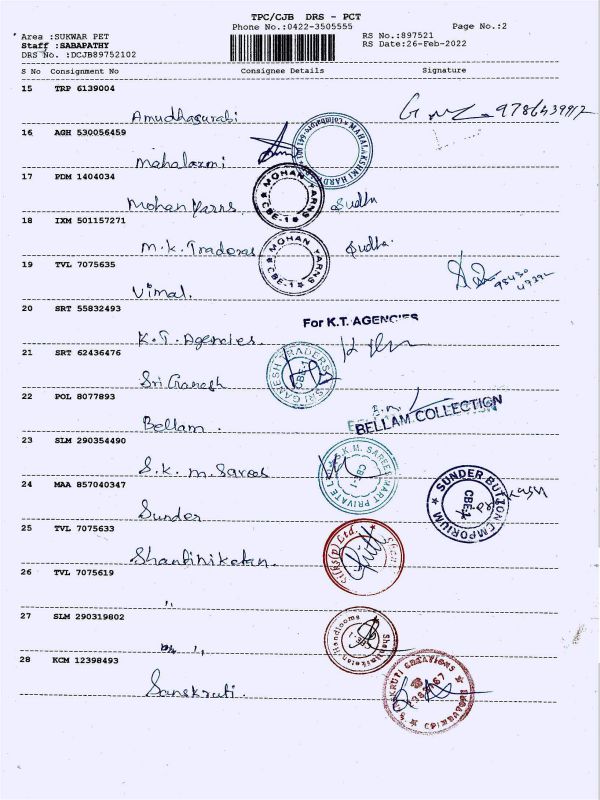 TPC/CJB DRS - PCT
Phone No.:0422-3505555 Page No.:2
Area :SUKWAR PET RS No.:897521
Staff :SABAPATHY RS Date:26-Feb-2022
DRS No. :DCJB89752102
S No Consignment No Consignee Details Signature
15 TRP 6139004
Amudhasurabi
16 AGH 530056459
Mahalaxmi MAHALAKSHMI HARDW
17 PDM 1404034
Mohan Yarns MOHAN YARNS CBE-1 Sudha
18 IXM 501157271
M.K. Traders MOHAN YARNS CBE-1 Sudha.
19 TVL 7075635
Vimal.
20 SRT 55832493
K.T. Agencies. For K.T. AGENCIES
21 SRT 62436476
Sri Ganesh SRI GANESH TRADERS CBE-1
22 POL 8077893
Bellam BELLAM COLLECTION
23 SLM 290354490
S.K.M. Sarees S.K.M. SAREE MART PRIVATE CBE-1
24 MAA 857040347
Sunder SUNDER BUTTON EMPORIUM CBE-1
25 TVL 7075633
Shantiniketan.
26 TVL 7075619
,,
27 SLM 290319802
,, Shantiniketan Handlooms
28 KCM 12398493
Sanskruti. KRUTI CREATIONS